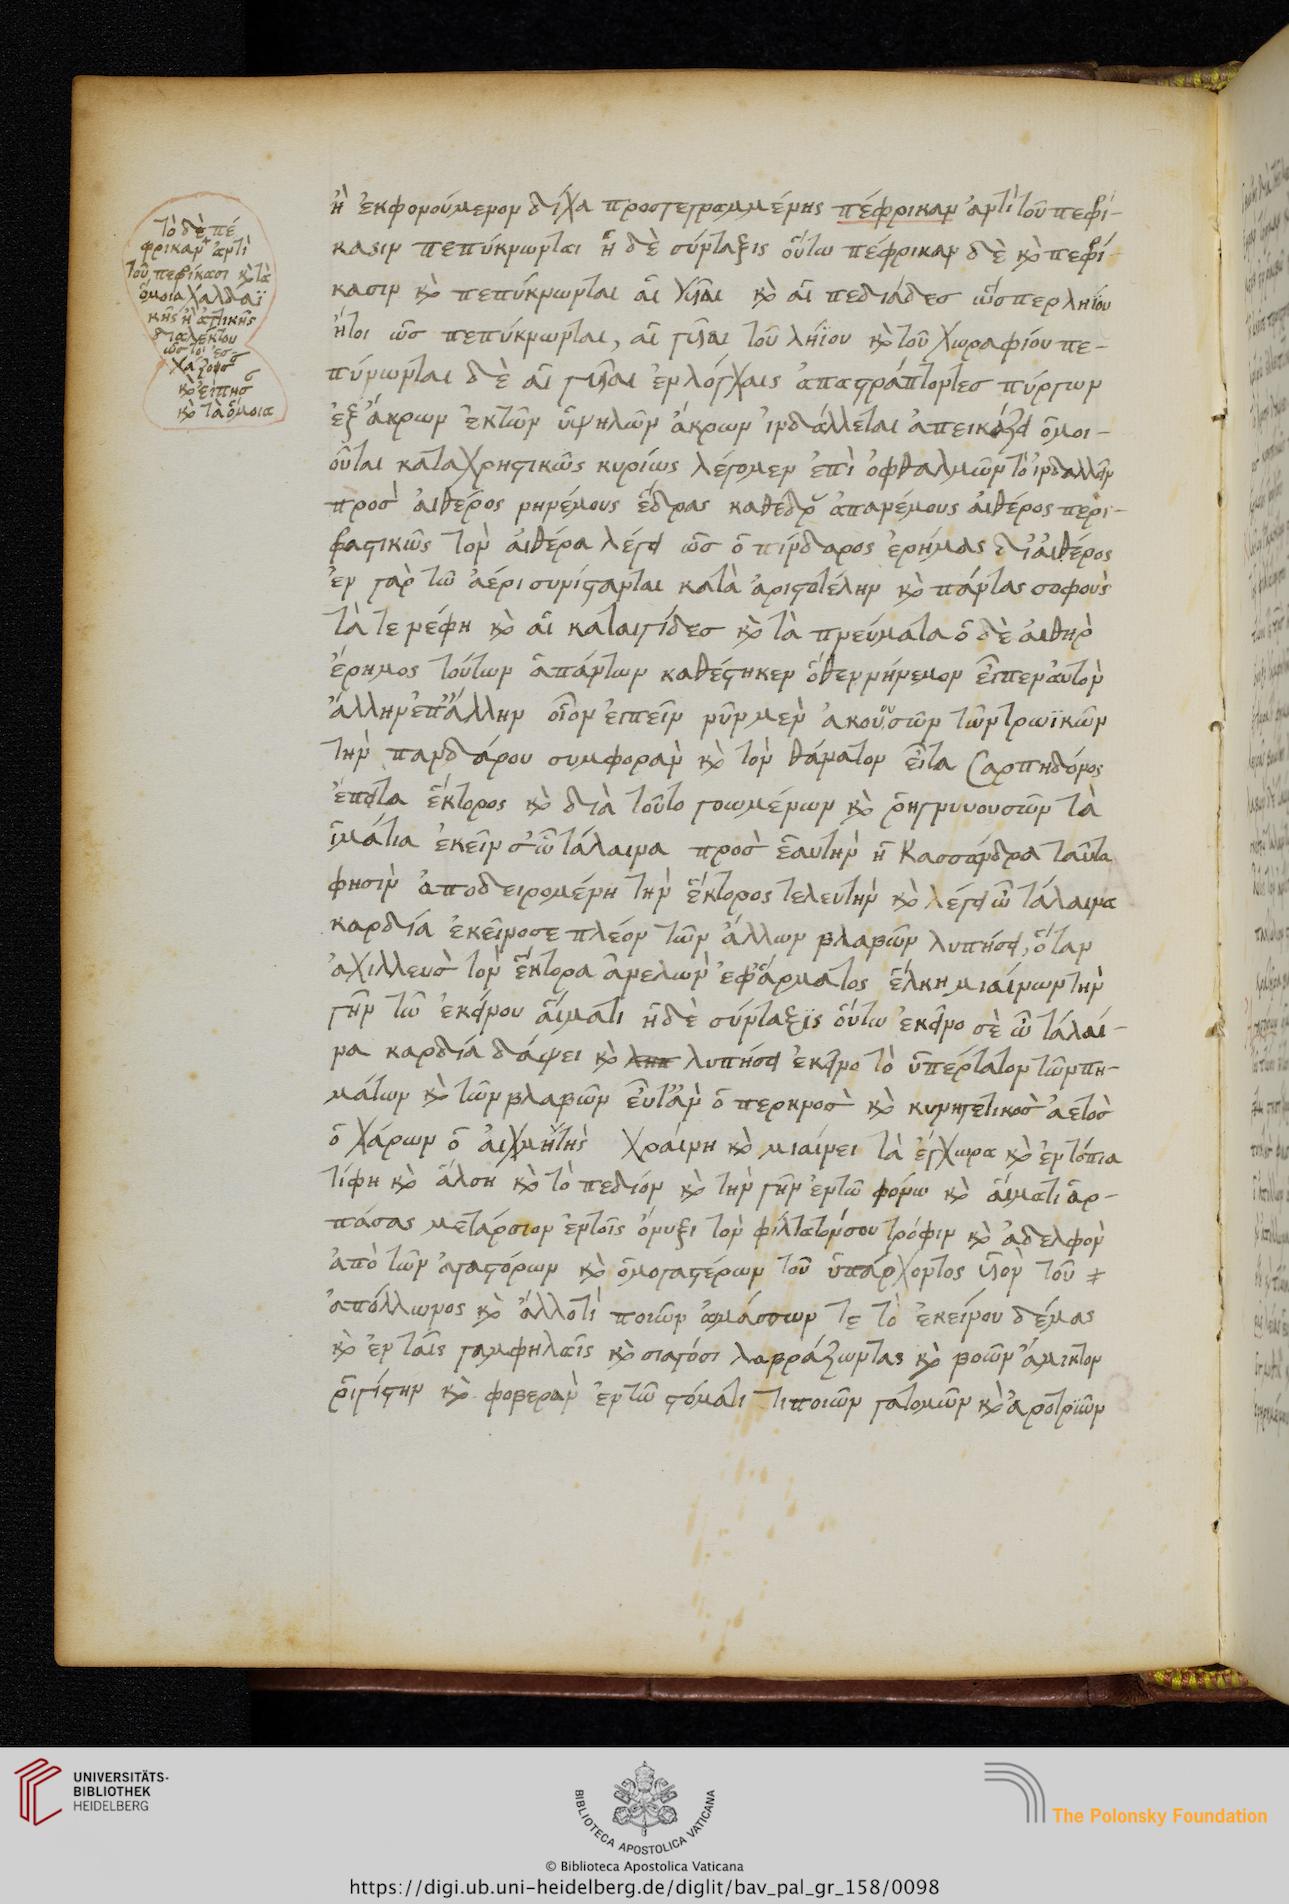 τὸ δὲ πέ
φρικαν ἀντὶ
τοῦ πεφρίκασι κ τὰ
ὅμοια χαλδαϊ
κῆς ἢ ἀττικῆς
διαλέκτου
κ τὰ ὅμοια
ἢ ἐκφονούμενον δίχα προσγεγραμμένης πέφρικαν ἀντὶ τοῦ πεφρί-
κασιν πεπύκνωνται ἡ δὲ σύνταξις οὕτω πέφρικαν δὲ κ πεφρί-
κασιν κ πεπύκνωνται αἱ γύαι κ αἱ πεδιάδες ὥσπερ ληΐου
ἤτοι ὡς πεπύκνωνται, αἱ γύαι τοῦ ληΐου κ τοῦ χωραφίου πε-
πύκνωνται δὲ αἱ γύαι ἐν λόγχαις ἀπαστράπτοντες πύργων
ἐξ ἄκρων ἐκ τῶν ὑψηλῶν ἄκρων ἰνδάλλεται ἀπεικάζει ὁμοι-
οῦται καταχρηστικῶς κυρίως λέγομεν ἐπὶ ὀφθαλμῶν τὸ ἰνδάλλειν
πρὸς αἰθέρος νηνέμους ἕδρας καθέδρ ἀπανέμους αἰθέρος περι-
φραστικῶς τὸν αἰθέρα λέγει ὡς ὁ πίνδαρος ἐρήμας δι αἰθέρος
ἐν γὰρ τῶ ἀέρι συνίστανται κατὰ ἀριστοτέλην κ πάντας σοφοὺς
τά τε νέφη κ αἱ καταιγίδες κ τὰ πνεύματα ὁ δὲ αἰθὴρ
ἔρημος τούτων ἁπάντων καθέστηκεν ὅθεν νήνεμον εἶπεν αὐτὸν
ἄλλην ἐπ ἄλλην οἷον εἰπεῖν νῦν μὲν ἀκουουσῶν τῶν τρωϊκῶν
τὴν πανδάρου συμφορὰν κ τὸν θάνατον εἶτα Σαρπηδόνος
ἔπειτα ἕκτορος κ διὰ τοῦτο γοωμένων κ ῥηγνυνουσῶν τὰ
ἱμάτια ἐκεῖν σ ὦ τάλαινα πρὸς ἑαυτὴν ἡ Κασσάνδρα ταῦτα
φησὶν ἀποδειρομένη τὴν ἕκτορος τελευτὴν κ λέγει ὦ τάλαινα
καρδία ἐκεῖνο σε πλέον τῶν ἄλλων βλαβῶν λυπήσει, ὅταν
ἀχιλλεὺς τὸν ἕκτορα ἀνελὼν ἐφ ἅρματος ἕλκη μιαίνων τὴν
γῆν τῶ ἐκείνου αἵματι ἡ δὲ σύνταξις οὕτω ἐκεῖνο σὲ ὦ τάλαι-
να καρδία δάψει κ λυπήσει ἐκεῖνο τὸ ὑπέρτατον τῶν πη-
μάτων κ τῶν βλαβῶν εὖτ ἂν ὁ περκνὸς κ κυνηγετικὸς ἀετὸς
ὁ χάρων ὁ αἰχμητὴς χραίνη κ μιαίνει τὰ ἔγχωρα κ ἐντόπια
τίφη κ ἄλση κ τὸ πεδίον κ τὴν γῆν ἐν τῶ φόνω κ αἵματι ἁρ-
πάσας μετάρσιον ἐν τοῖς ὄνυξι τὸν φίλτατόν σου τρόφιν κ ἀδελφὸν
ἀπὸ τῶν ἀγαστόρων κ ὁμογαστέρων τοῦ ὑπάρχοντος υἱὸν τοῦ
ἀπόλλωνος κ ἄλλό τι ποιῶν ἀμάσσων τε τὸ ἐκείνου δέμας
κ ἐν ταῖς γαμφηλαῖς κ σιαγόσι λαβράζωντας κ βοῶν ἄμικτον
ῥιγίστην κ φοβερὰν ἐν τῶ στόματι τί ποιῶν γατομῶν κ ἀροτριῶν
UNIVERSITÄTS-
BIBLIOTHEK
HEIDELBERG
BIBLIOTECA APOSTOLICA VATICANA
The Polonsky Foundation
© Biblioteca Apostolica Vaticana
https://digi.ub.uni-heidelberg.de/diglit/bav_pal_gr_158/0098